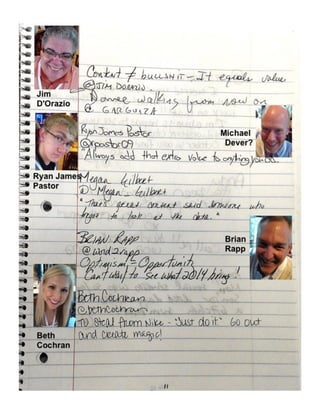 Content ≠ bullshit - It equals value
@JIM DORAZIO
Jim
D'Orazio
Dannee walking from now on
GARGUIZA
Ryan James Pastor
@rpastor09
Always add that extra value to anything you do.
Michael
Dever?
Ryan James
Pastor
Megan Gilbert
Megan Gilbert
"That's great content said someone who
to look at the data."
BRIAN RAPP
@wnd2rapp
Optimism = Opportunity
Can't wait to see what 2014 brings!
Brian
Rapp
Beth Cochran
@bethcochran
To steal from Nike - "Just do it" Go out
and create magic!
Beth
Cochran
11